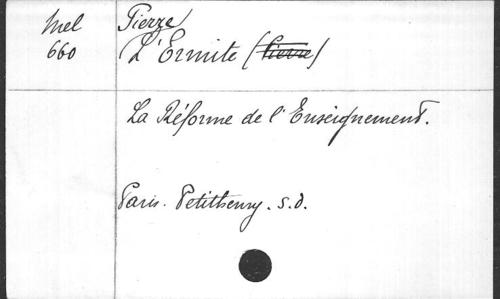 Mel
660
Pierre
L'Ermite (Pierre)
La Réforme de l'Enseignement.
Paris. Petithenry. s.d.